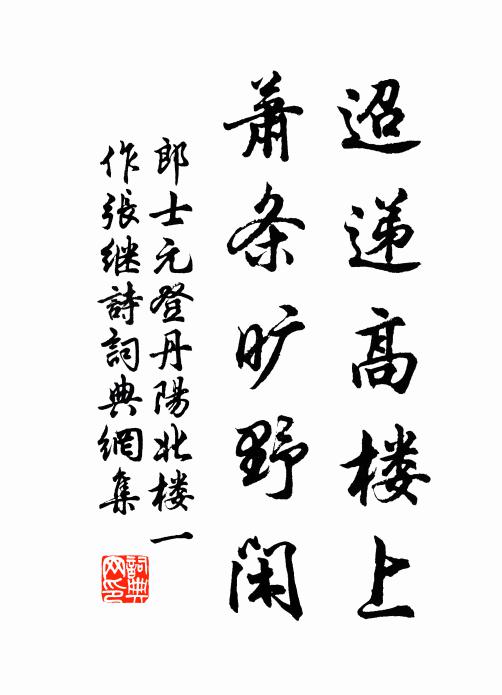 迢递高楼上
萧条旷野闲
郎士元登丹陽北楼一
作張继詩詞典網集
詞典
网印